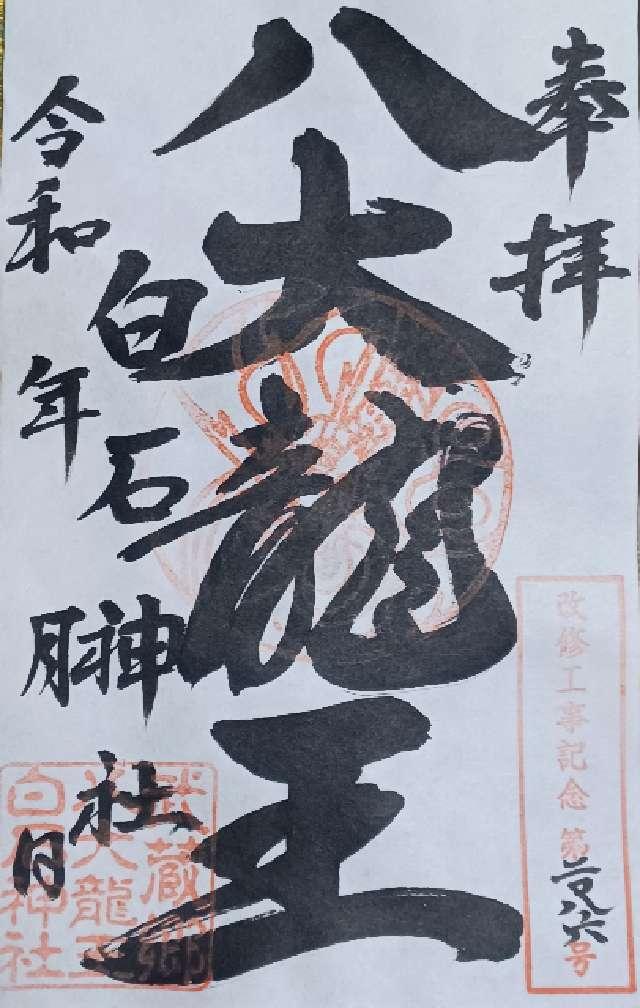 奉拝
八大龍王
白石神社
令和 年 月 日
改修工事記念 第二百八六号
武蔵郷
八大龍王
白石神社